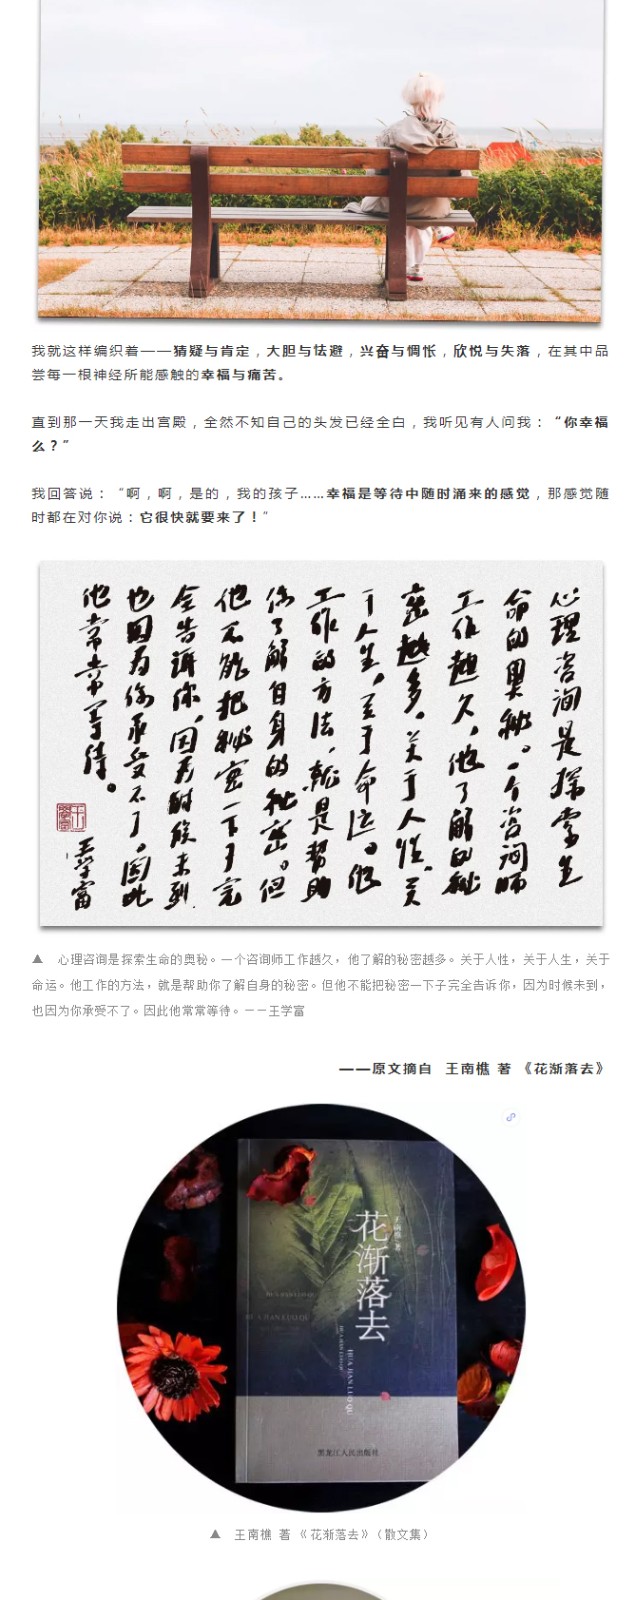 我就这样编织着——猜疑与肯定，大胆与怯避，兴奋与惆怅，欣悦与失落，在其中品
尝每一根神经所能感触的幸福与痛苦。
直到那一天我走出宫殿，全然不知自己的头发已经全白，我听见有人问我：“你幸福
么？”
我回答说：“啊，啊，是的，我的孩子……幸福是等待中随时涌来的感觉，那感觉随
时都在对你说：它很快就要来了！”
心理咨询是探索生
命的奥秘。一个咨询师
工作越久，他了解的秘
密越多。关于人性，关
于人生，关于命运。他
工作的方法，就是帮助
你了解自身的秘密。但
他不能把秘密一下子完
全告诉你，因为时候未到，
也因为你承受不了。因此
他常常等待。
王学富
▲ 心理咨询是探索生命的奥秘。一个咨询师工作越久，他了解的秘密越多。关于人性，关于人生，关于
命运。他工作的方法，就是帮助你了解自身的秘密。但他不能把秘密一下子完全告诉你，因为时候未到，
也因为你承受不了。因此他常常等待。——王学富
——原文摘自 王南樵 著 《花渐落去》
王南樵 著
花渐落去
HUA JIAN LUO QU
HUA JIAN LUO QU
HUA JIAN LUO QU
HUA JIAN LUO QU
黑龙江人民出版社
▲ 王南樵 著 《花渐落去》（散文集）